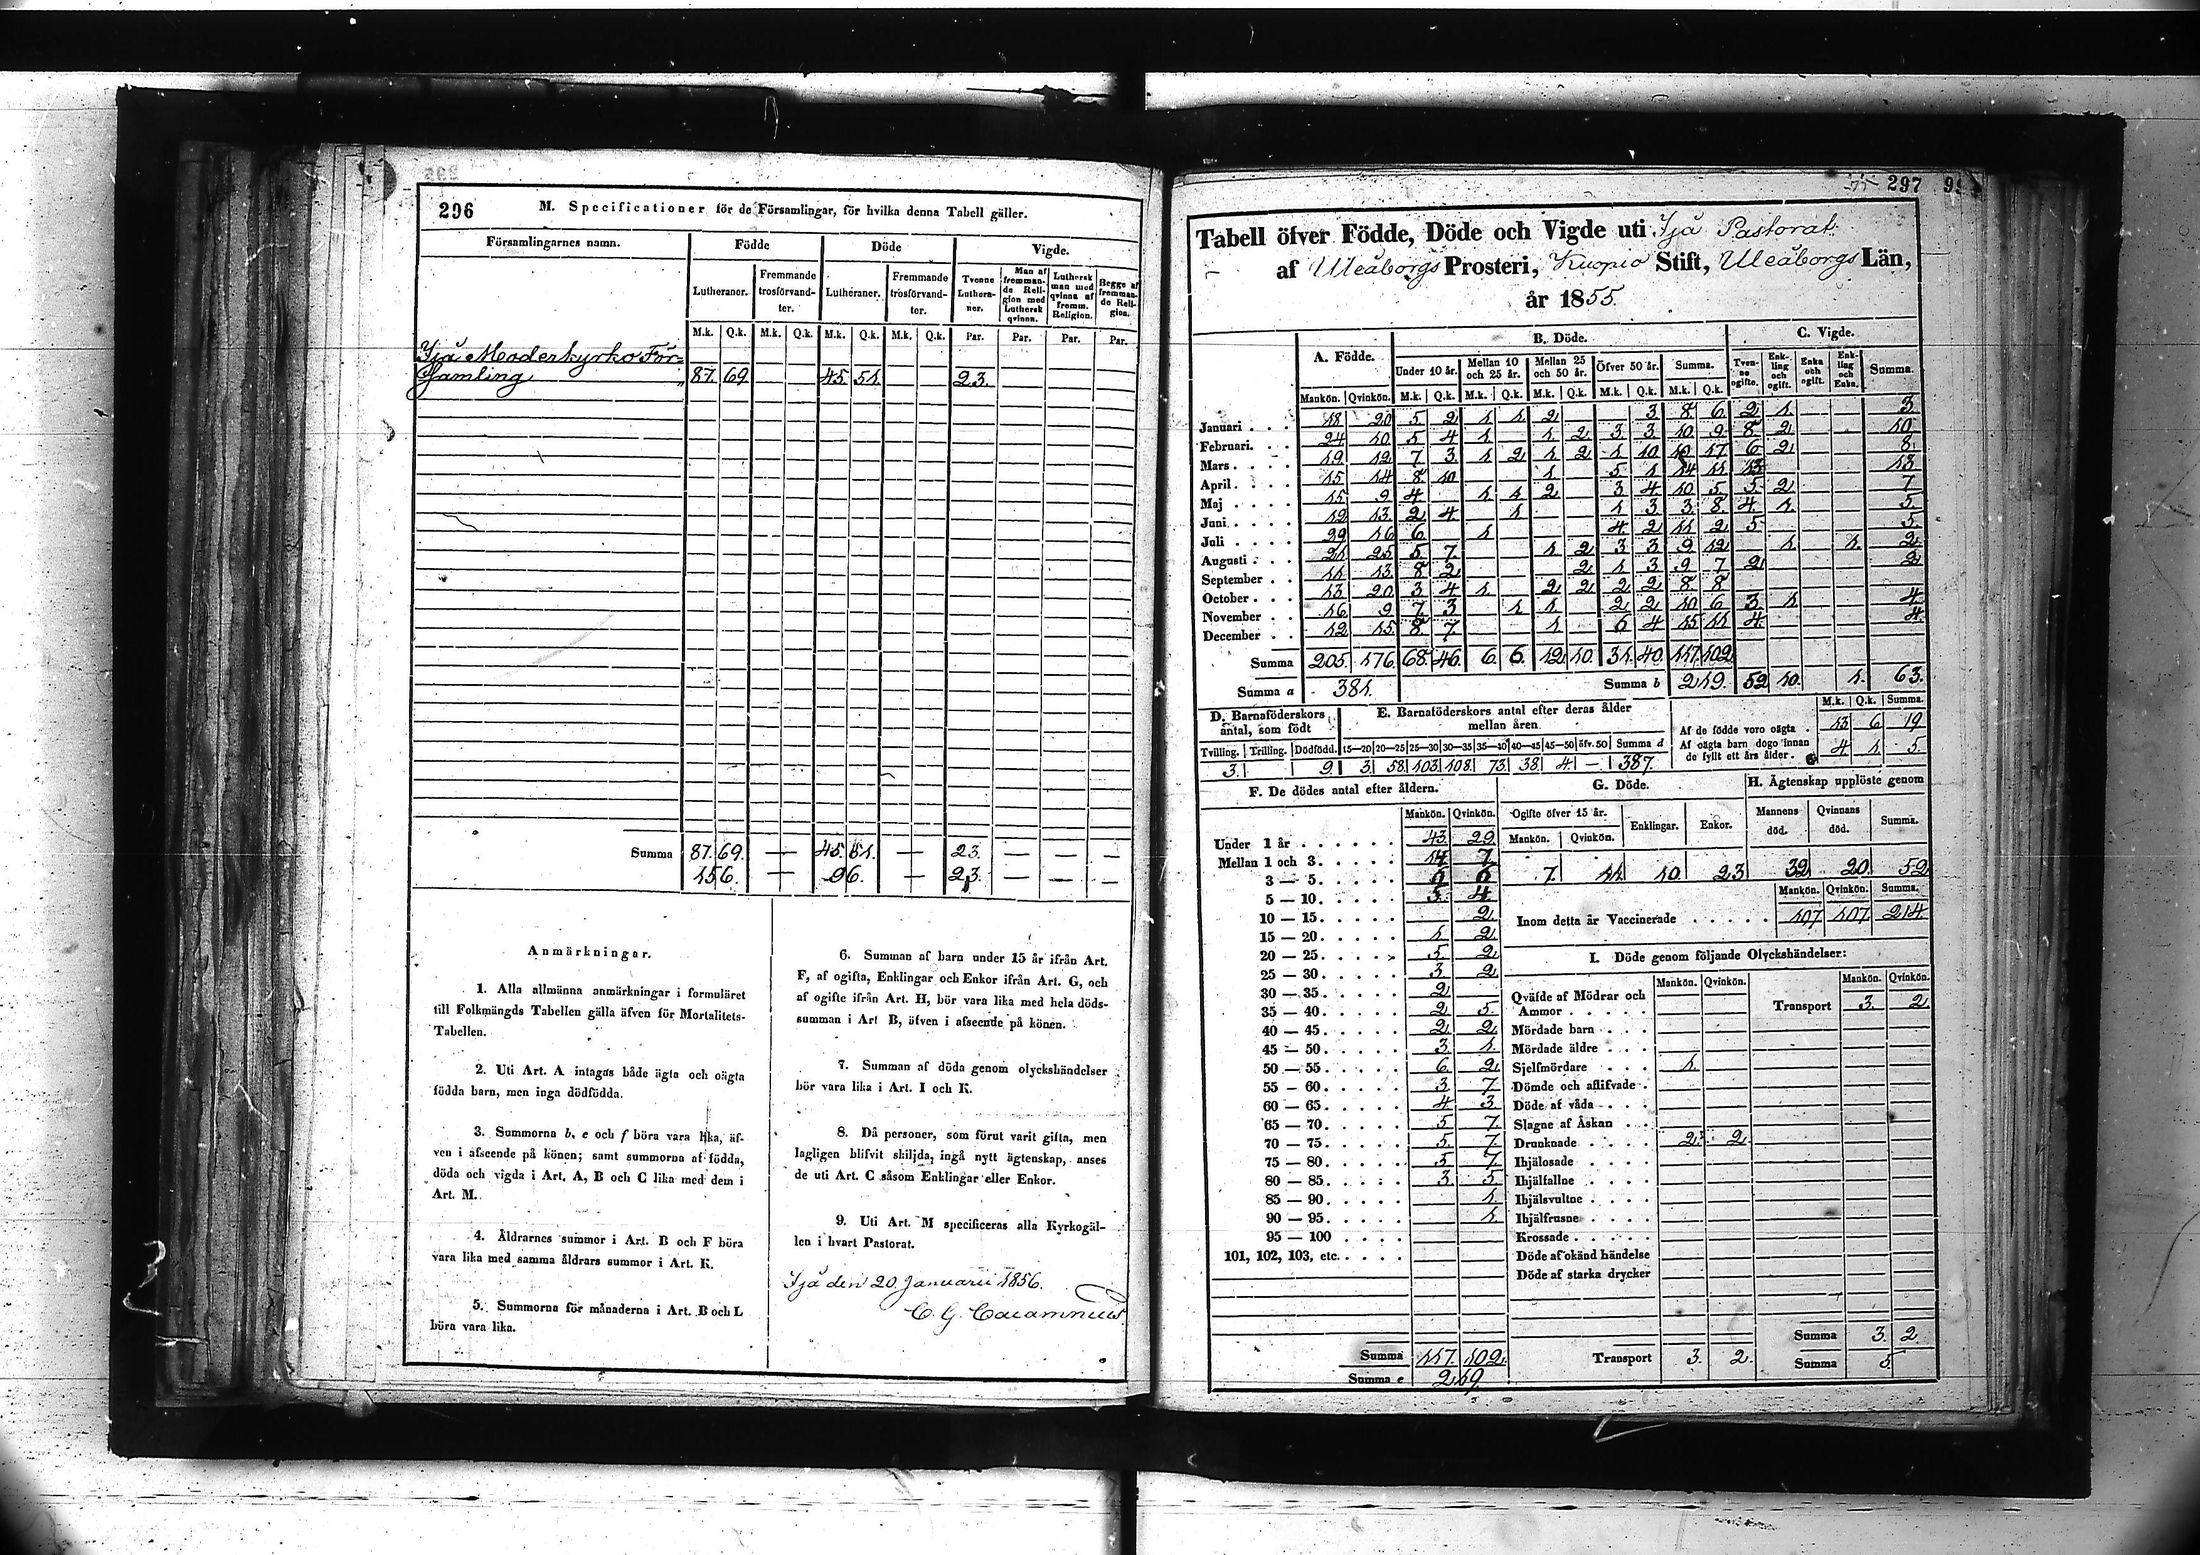 296 M. Specificationer för de Församlingar, för hvilka denna Tabell gäller.
Församlingarnes namn. Födde Döde Vigde.
Lutheraner. Fremmande trosförvandter. Lutheraner. Fremmande trosförvandter. Tvenne Lutheraner. Man af fremmande Religion med Luthersk qvinna. Luthersk man med qvinna af fremm. Religion. Begge af fremmande Religion.
M.k. Q.k. M.k. Q.k. M.k. Q.k. M.k. Q.k. Par. Par. Par. Par.
Ijå Moderkyrko För=
samling 87. 69. 45. 51. 23.
Summa 87. 69. — 45. 51. — 23. — — —
156. — 96. — 23. — — —
Anmärkningar.
1. Alla allmänna anmärkningar i formuläret
till Folkmängds Tabellen gälla äfven för Mortalitets-
Tabellen.
2. Uti Art. A intagas både ägta och oägta
födda barn, men inga dödfödda.
3. Summorna b, e och f böra vara lika, äf-
ven i afseende på könen; samt summorna af födda,
döda och vigda i Art. A, B och C lika med dem i
Art. M.
4. Åldrarnes summor i Art. B och F böra
vara lika med samma åldrars summor i Art. K.
5. Summorna för månaderna i Art. B och L
böra vara lika.
6. Summan af barn under 15 år ifrån Art.
F, af ogifta, Enklingar och Enkor ifrån Art. G, och
af ogifte ifrån Art. H, bör vara lika med hela döds-
summan i Art B, äfven i afseende på könen.
7. Summan af döda genom olyckshändelser
bör vara lika i Art. I och K.
8. Då personer, som förut varit gifta, men
lagligen blifvit skiljda, ingå nytt ägtenskap, anses
de uti Art. C såsom Enklingar eller Enkor.
9. Uti Art. M specificeras alla Kyrkogäl-
len i hvart Pastorat.
Ijå den 20 Januarii 1856.
C. G.
297
Tabell öfver Födde, Döde och Vigde uti Ijå Pastorat
af Uleåborgs Prosteri, Kuopio Stift, Uleåborgs Län,
år 1855.
A. Födde. B. Döde. C. Vigde.
Under 10 år. Mellan 10 och 25 år. Mellan 25 och 50 år. Öfver 50 år. Summa. Tvenne ogifte. Enkling och ogift. Enka och ogift. Enkling och Enka. Summa.
Mankön. Qvinkön. M.k. Q.k. M.k. Q.k. M.k. Q.k. M.k. Q.k. M.k. Q.k.
Januari 18 20 5 2 1 1 2 3 8 6 2 1 3
Februari 24 10 5 4 1 1 2 3 3 10 9 8 2 10
Mars 19 12 7 3 1 2 1 2 1 10 10 17 6 2 8
April 15 14 8 10 1 5 1 14 11 13 13
Maj 15 9 4 1 1 2 3 4 10 5 5 2 7
Juni 12 13 2 4 1 1 3 3 8 4 1 5
Juli 29 16 6 1 4 2 11 2 5 5
Augusti 21 25 5 7 1 2 3 3 9 12 1 1 2
September 11 13 8 2 2 1 3 9 7 2 2
October 13 20 3 4 1 2 2 2 2 8 8
November 16 9 7 3 1 1 2 2 10 6 3 1 4
December 12 15 8 7 1 6 4 15 11 4 4
Summa 205. 176. 68. 46. 6. 6. 12. 10. 31. 40. 117. 102.
Summa a 381. Summa b 219. 52 10. 1. 63.
D. Barnaföderskors antal, som födt E. Barnaföderskors antal efter deras ålder mellan åren
Tvilling. Trilling. Dödfödd. 15—20 20—25 25—30 30—35 35—40 40—45 45—50 öfv. 50 Summa d
3. 9. 3. 58. 103. 108. 73. 38. 4. — 387.
M.k. Q.k. Summa.
Af de födde voro oägta 13 6 19
Af oägta barn dogo innan de fyllt ett års ålder 4. 1. 5.
F. De dödes antal efter åldern.
Mankön. Qvinkön.
Under 1 år 43. 29.
Mellan 1 och 3 14 7.
3 — 5 6 6
5 — 10 5. 4.
10 — 15 2.
15 — 20 1 2
20 — 25 5. 2
25 — 30 3 2
30 — 35 2
35 — 40 2 5.
40 — 45 2. 2.
45 — 50 3. 1.
50 — 55 6. 2.
55 — 60 3 7
60 — 65 4 3.
65 — 70 5 7
70 — 75 5. 7.
75 — 80 5 7.
80 — 85 3. 5
85 — 90 1.
90 — 95 1.
95 — 100
101, 102, 103, etc.
Summa 117. 102.
Summa e 219.
G. Döde.
Ogifte öfver 15 år. Enklingar. Enkor.
Mankön. Qvinkön.
7. 11. 10. 23
H. Ägtenskap upplöste genom
Mannens död. Qvinnans död. Summa.
32 20. 52
Mankön. Qvinkön. Summa.
Inom detta år Vaccinerade 107 107 214.
I. Döde genom följande Olyckshändelser:
Mankön. Qvinkön. Mankön. Qvinkön.
Qväfde af Mödrar och Ammor Transport 3. 2.
Mördade barn
Mördade äldre
Sjelfmördare 1.
Dömde och aflifvade
Döde af våda
Slagne af Åskan
Drunknade 2. 2
Ihjälosade
Ihjälfallne
Ihjälsvultne
Ihjälfrusne
Krossade
Döde af okänd händelse
Döde af starka drycker
Summa 3. 2.
Transport 3. 2. Summa 5